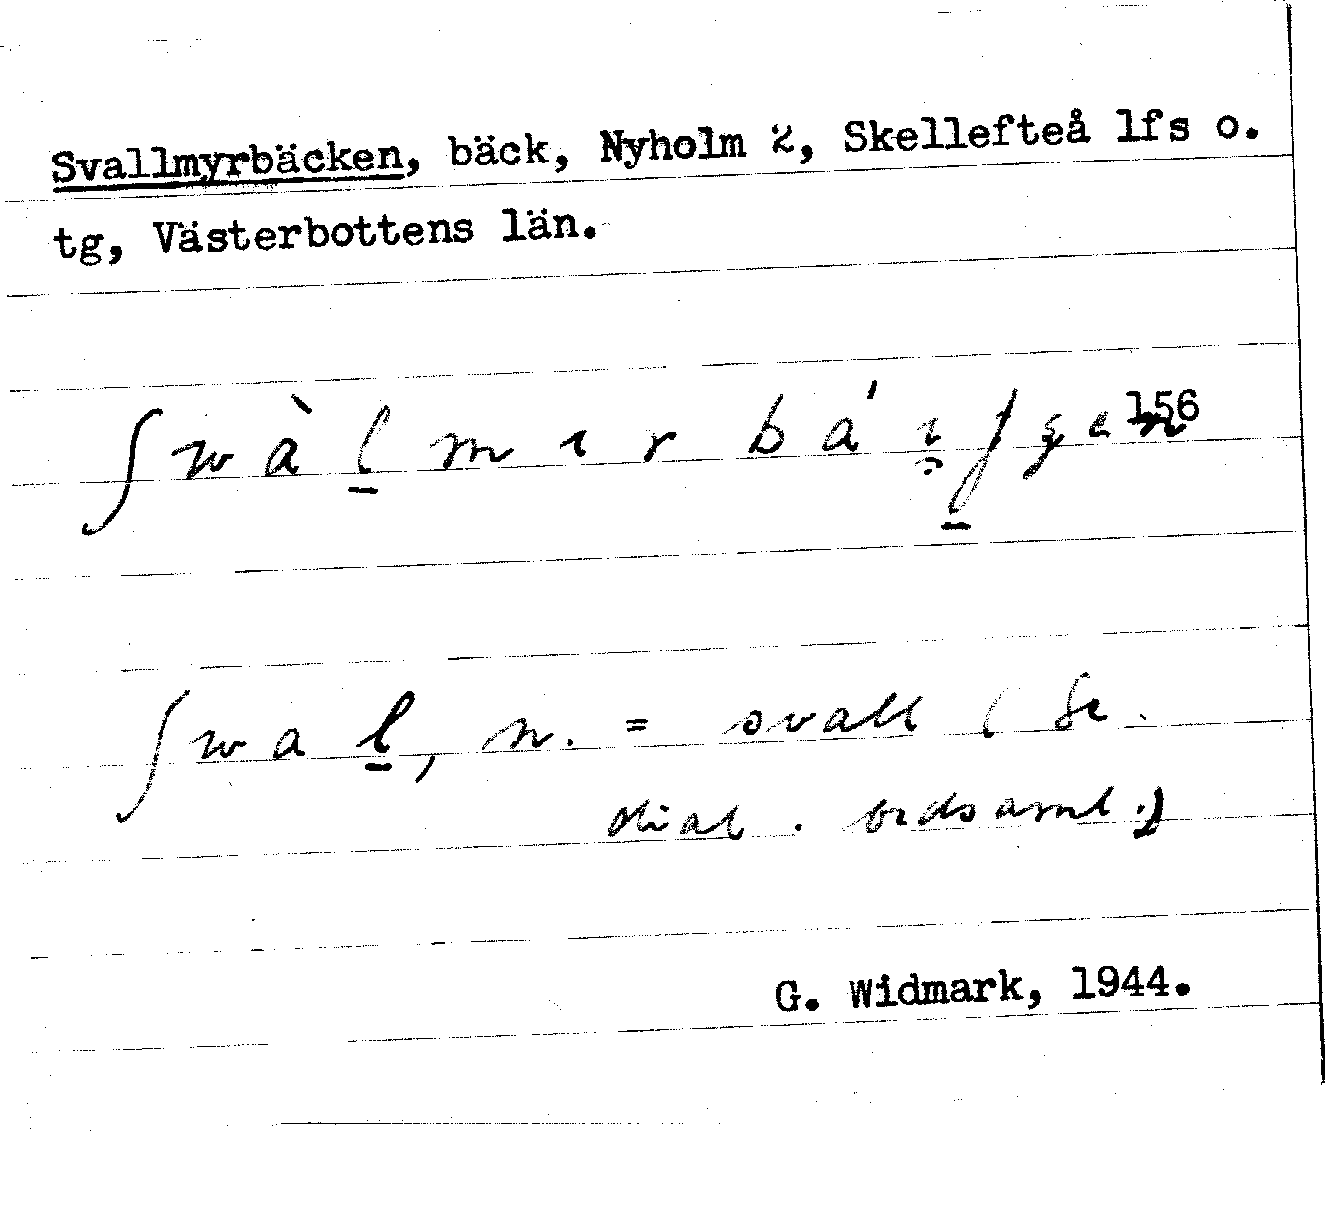 Svallmyrbäcken, bäck, Nyholm 2, Skellefteå lfs o.
tg, Västerbottens län.
156
ʃwal̲, n. = svall (Se
dial. ordsaml.)
G. Widmark, 1944.